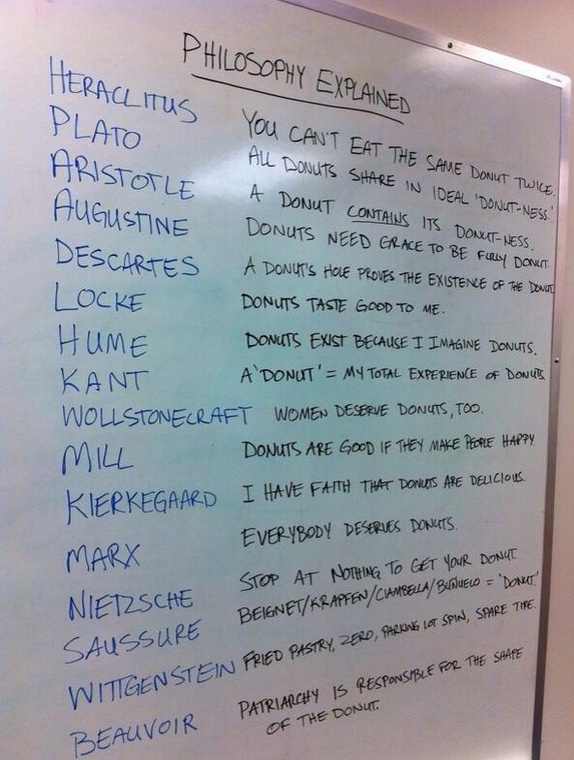 PHILOSOPHY EXPLAINED
HERACLITUS YOU CAN'T EAT THE SAME DONUT TWICE.
PLATO ALL DONUTS SHARE IN IDEAL 'DONUT-NESS.'
ARISTOTLE A DONUT CONTAINS ITS DONUT-NESS.
AUGUSTINE DONUTS NEED GRACE TO BE FULLY DONUT.
DESCARTES A DONUT'S HOLE PROVES THE EXISTENCE OF THE DONUT
LOCKE DONUTS TASTE GOOD TO ME.
HUME DONUTS EXIST BECAUSE I IMAGINE DONUTS.
KANT A 'DONUT' = MY TOTAL EXPERIENCE OF DONUTS
WOLLSTONECRAFT WOMEN DESERVE DONUTS, TOO.
MILL DONUTS ARE GOOD IF THEY MAKE PEOPLE HAPPY.
KIERKEGAARD I HAVE FAITH THAT DONUTS ARE DELICIOUS.
MARX EVERYBODY DESERVES DONUTS.
NIETZSCHE STOP AT NOTHING TO GET YOUR DONUT.
SAUSSURE BEIGNET/KRAPFEN/CIAMBELLA/BUÑUELO = 'DONUT.'
WITTGENSTEIN FRIED PASTRY, ZERO, PARKING LOT SPIN, SPARE TIRE.
BEAUVOIR PATRIARCHY IS RESPONSIBLE FOR THE SHAPE
OF THE DONUT.